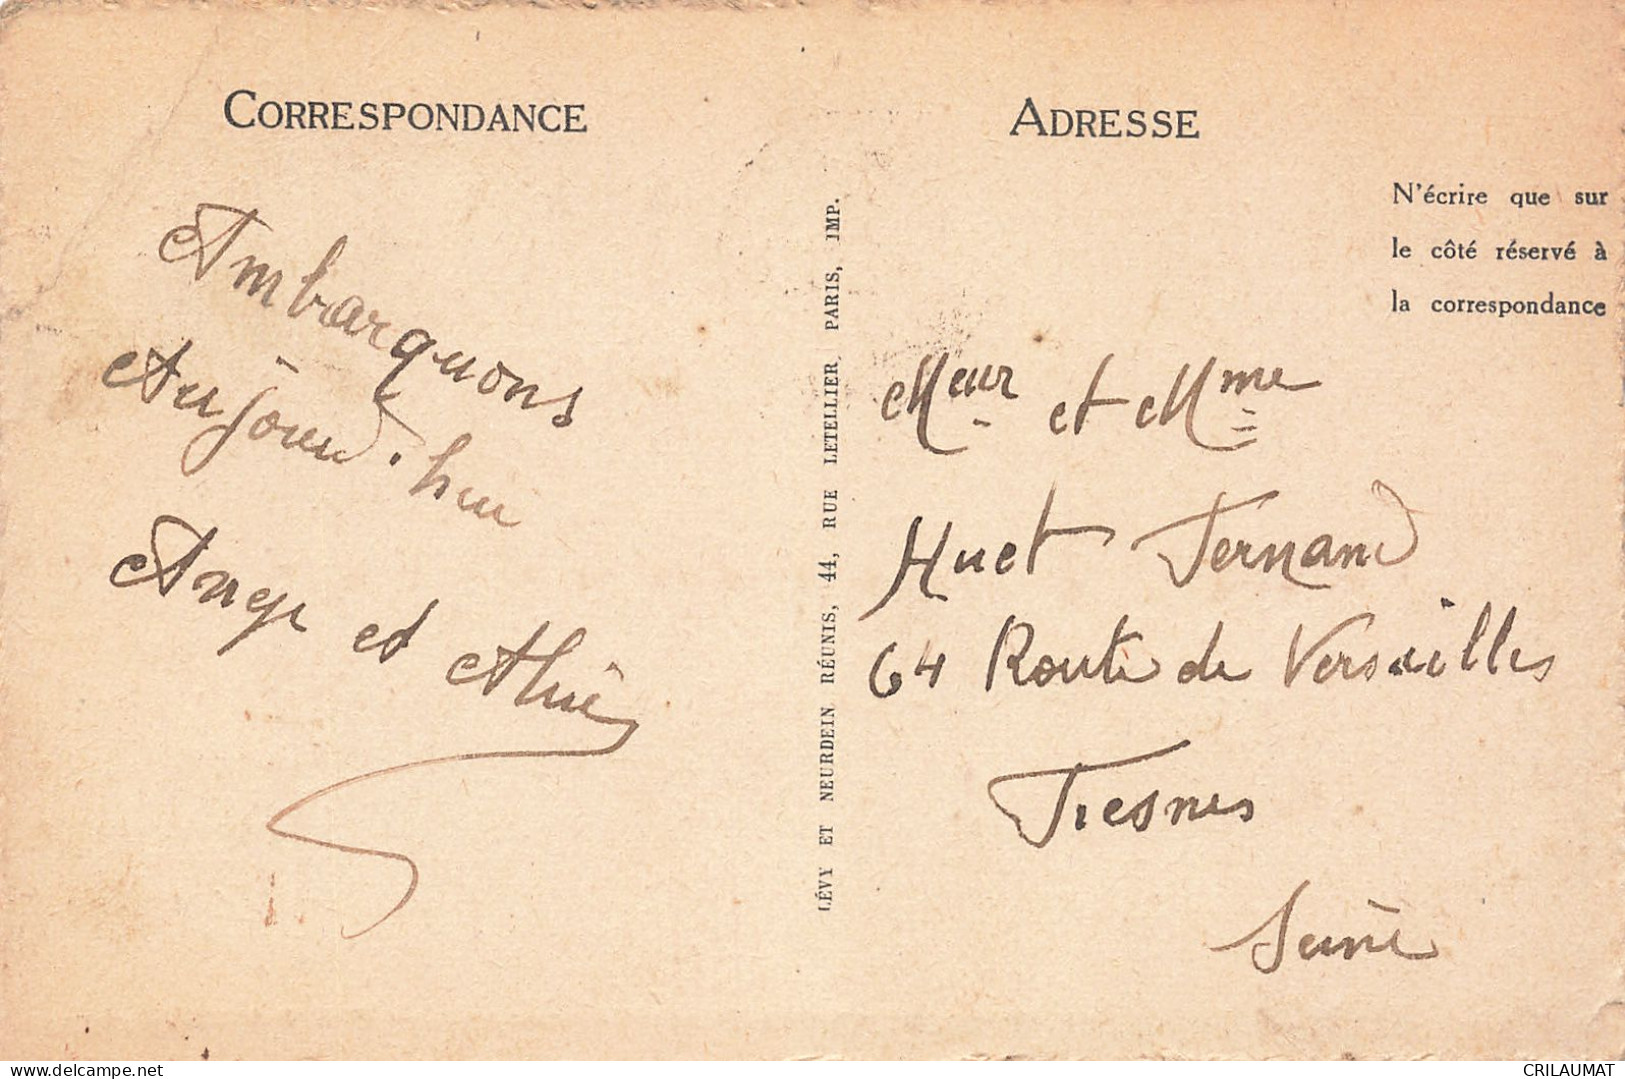 CORRESPONDANCE
Ambarquons
Aujourd'hui
Ange et
LÉVY ET NEURDEIN RÉUNIS, 44, RUE LETELLIER, PARIS, IMP.
ADRESSE
N'écrire que sur
le côté réservé à
la correspondance
Meur et Mme
Huet Fernand
64 Route de Versailles
Fresnes
Seine
delcampe.net
CRILAUMAT